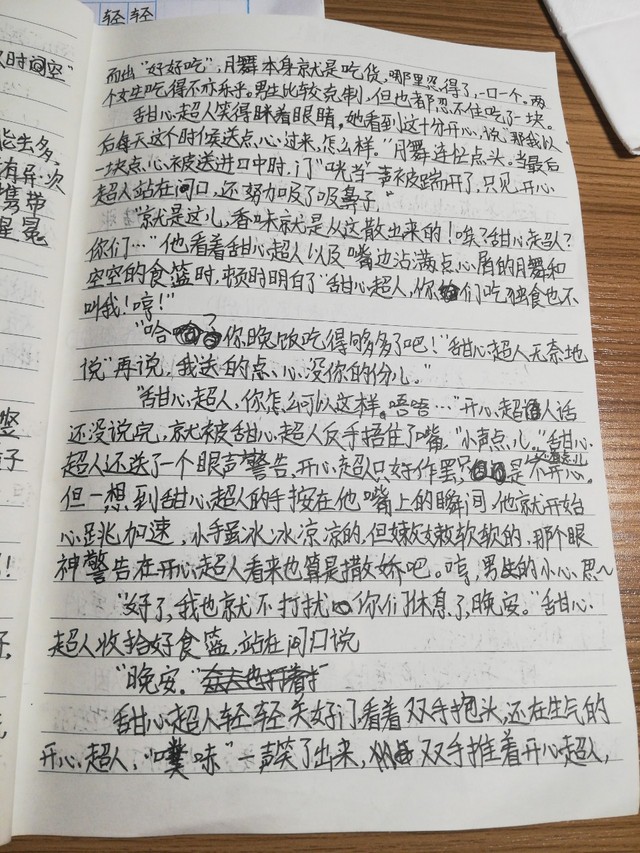 轻轻
时间空"
生多,
有异次
携带
星冕
而出"好好吃",月舞本身就是吃货,哪里忍得了,一口一个。两
个女生吃得不亦乐乎。男生比较克制,但也都忍不住吃了一块。
甜心超人笑得眯着眼睛,她看到这十分开心,说"那我以
后每天这个时候送点心过来,怎么样。"月舞连忙点头。当最后
一块点心被送进口中时,门"咣当"一声被踹开了,只见开心
超人站在门口,还努力吸了吸鼻子,
"就是这儿,香味就是从这散出来的!唉?甜心超人?
你们…"他看着甜心超人以及嘴边沾满点心屑的月舞和
空空的食篮时,顿时明白了"甜心超人,你们吃独食也不
叫我!哼!"
"哈了你晚饭吃得够多了吧!"甜心超人无奈地
说"再说,我送的点心没你的份儿。"
"甜心超人,你怎么可以这样。唔唔…"开心超人话
还没说完,就被甜心超人反手捂住了嘴,"小声点儿,"甜心
超人还送了一个眼声警告,开心超只好作罢,只是不开心。
但一想到甜心超人的手按在他嘴上的瞬间,他就开始
心跳加速,小手虽冰冰凉凉的,但嫩嫩软软的,那个眼
神警告在开心超人看来也算是撒娇吧。哼,男生的小心思~
"好了,我也就不打扰你们休息了,晚安。"甜心
超人收拾好食篮,站在门口说
"晚安。"
甜心超人轻轻关好门,看着双手抱头,还在生气的
开心超人,"噗嗤"一声笑了出来,双手推着开心超人,